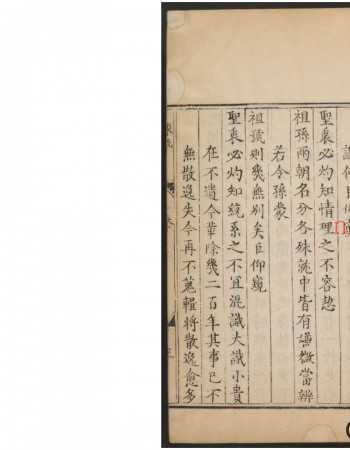 聖裏必灼知情理之不容恝
祖孫兩朝名分各殊就中皆有謙微當辨
若令孫蒙
祖號則幾無別矣臣仰窺
聖裏必灼知統系之不宜混識大識小貴
在不遺今革除幾二百年其事已不
無散逸失今再不蒐輯將散逸愈多